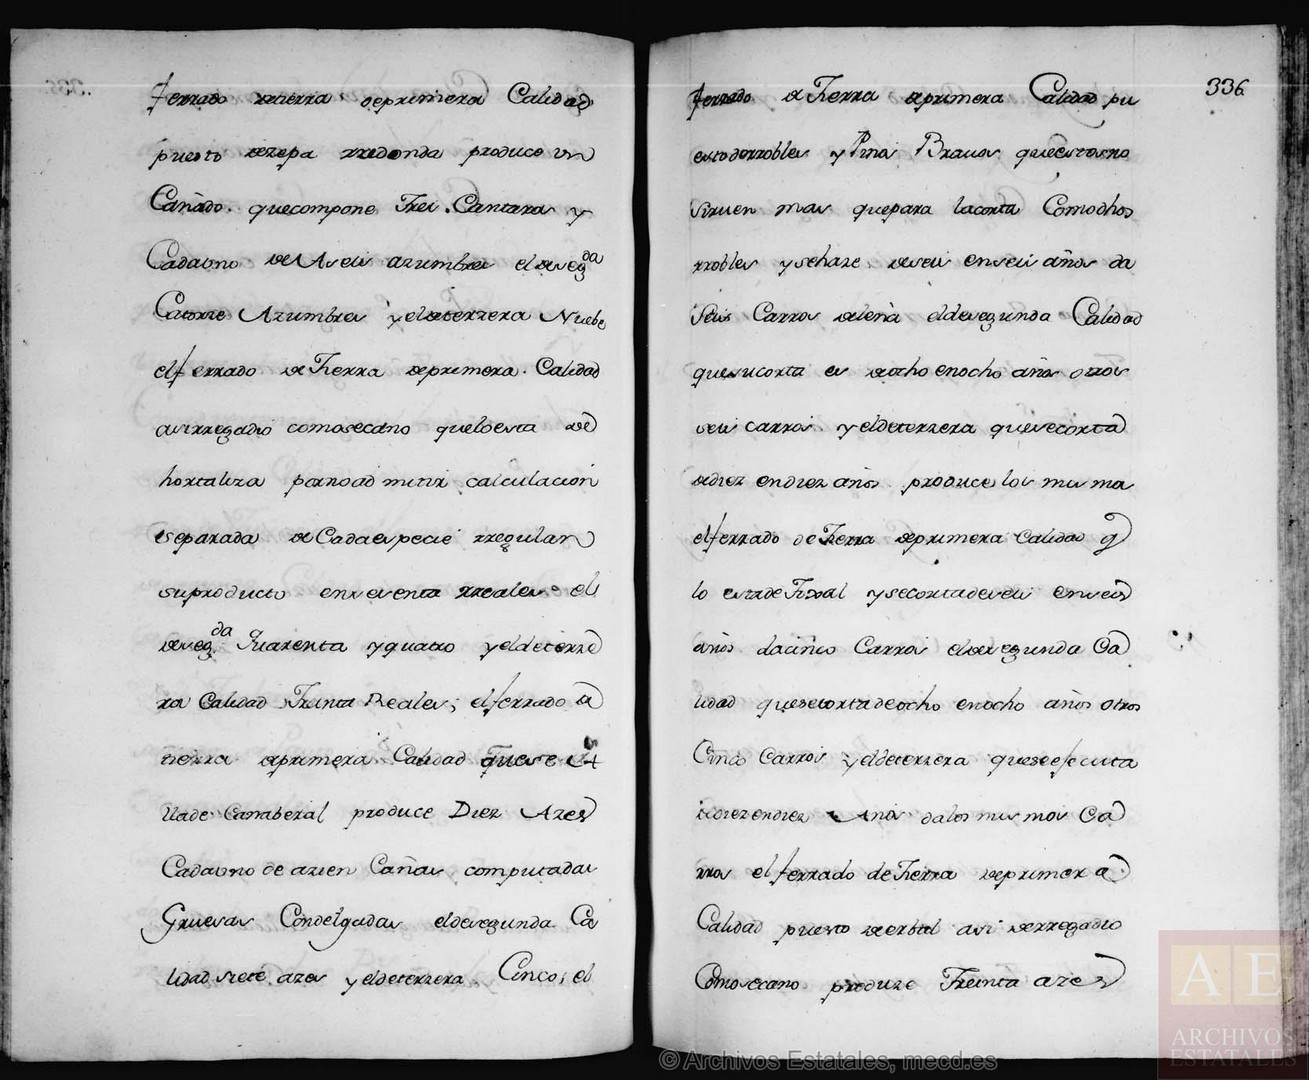 ferrado detierra deprimera Calidad
puesto dezepa rredonda produce un
Cañado. quecompone Tres. Cantaras y
Cadauno de Aseis azumbres eldeseg.da
Catorze Azumbres yeldeterzera Nuebe
elferrado de Tierra deprimera. Calidad
asirregadio comosecano queloesta de
hortaliza pornoadmitir calculacion
separada de Cadaespecie rregular
suproducto ensesenta rreales el
deseg.da Quarenta yquatro yeldeterze
ra Calidad Trinta Reales; elferrado de
tierra deprimera Calidad quese
llade Canaberal produce Diez Azes
Cadauno de azien Cañas computadas
Gruesas Condelgadas eldesegunda Ca
lidad siete azes yeldeterzera. Cinco; el
336
ferrado de Tierra deprimera Calidad pu
estoderrobles y Pinos Brauos queestosno
siruen mas quepara lacorta Comodhos
rrobles ysehaze deseis enseis años da
Seis Carros deleña eldesegunda Calidad
quesucorta es deocho enocho años otros
seis carros yeldeterzera quesecorta
dediez endiez años produce los mismos
elferrado de Tierra deprimera Calidad q
lo estade Toxal ysecortadeseis enseis
años dacinco Carros eldesegunda Ca
lidad quesecortadeocho enocho años otros
Cinco Carros yeldeterzera queseejecuta
dediezendiez Años dalos mismos Ca
rros elferrado deTierra deprimera
Calidad puesto deerbal asi derregadio
Comosecano produze Treinta azes
© Archivos Estatales, mecd.es
AE
ARCHIVOS
ESTATALES